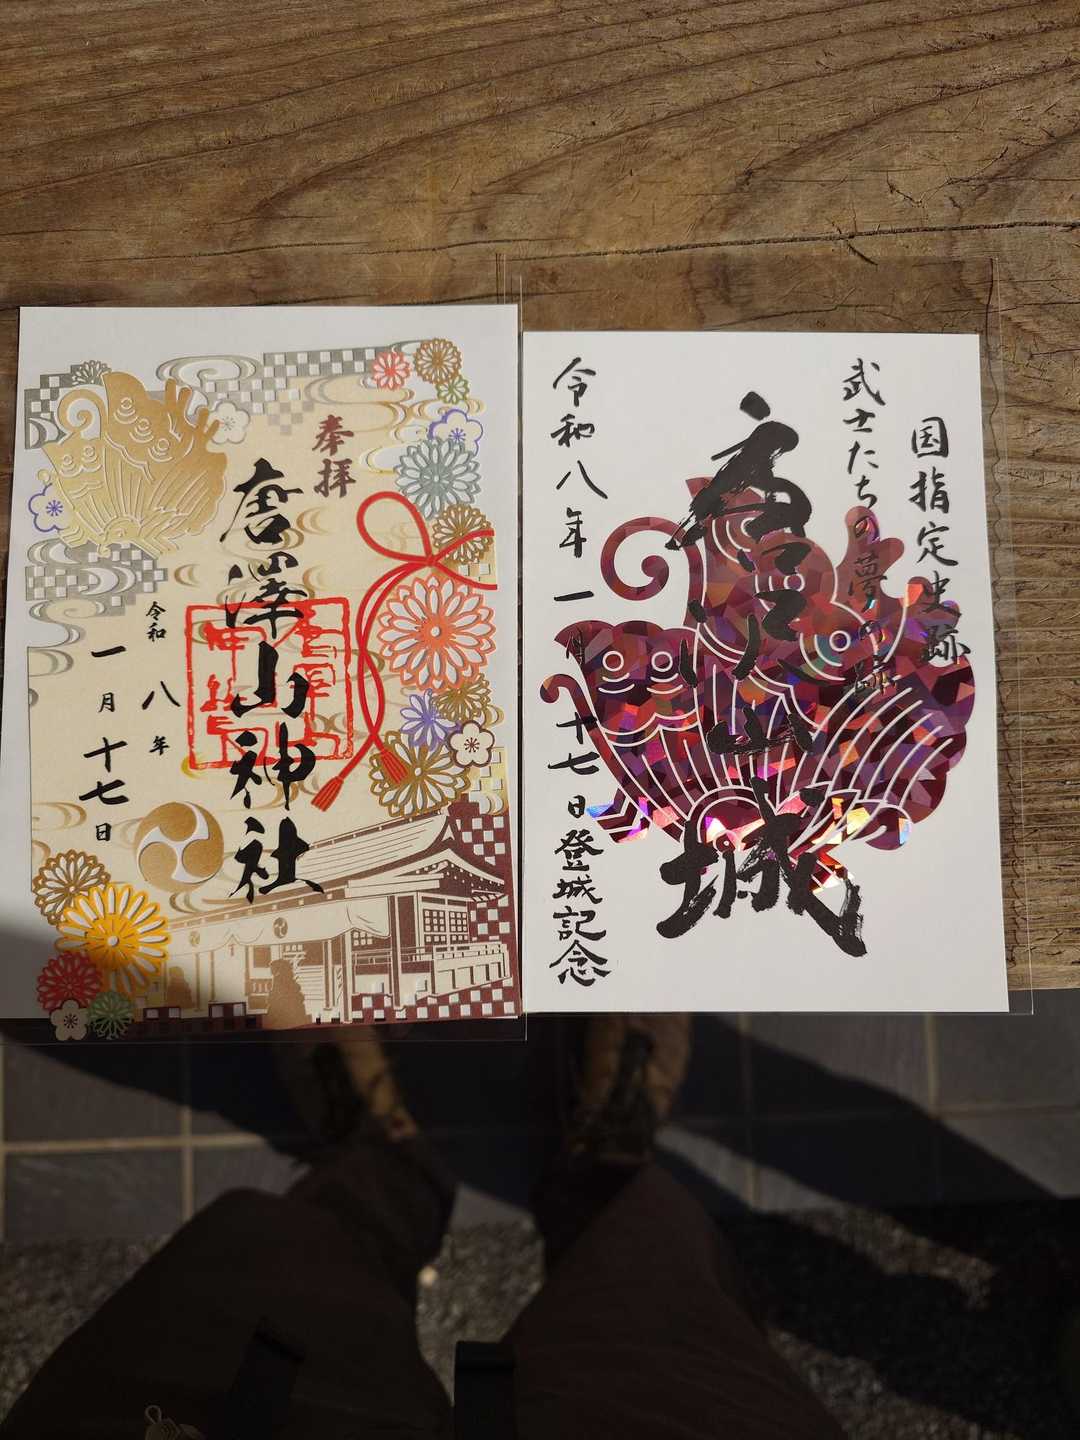 奉拝
唐澤山神社
令和八年
一月十七日
国指定史跡
武士たちの夢の跡
唐沢山城
令和八年一月十七日登城記念